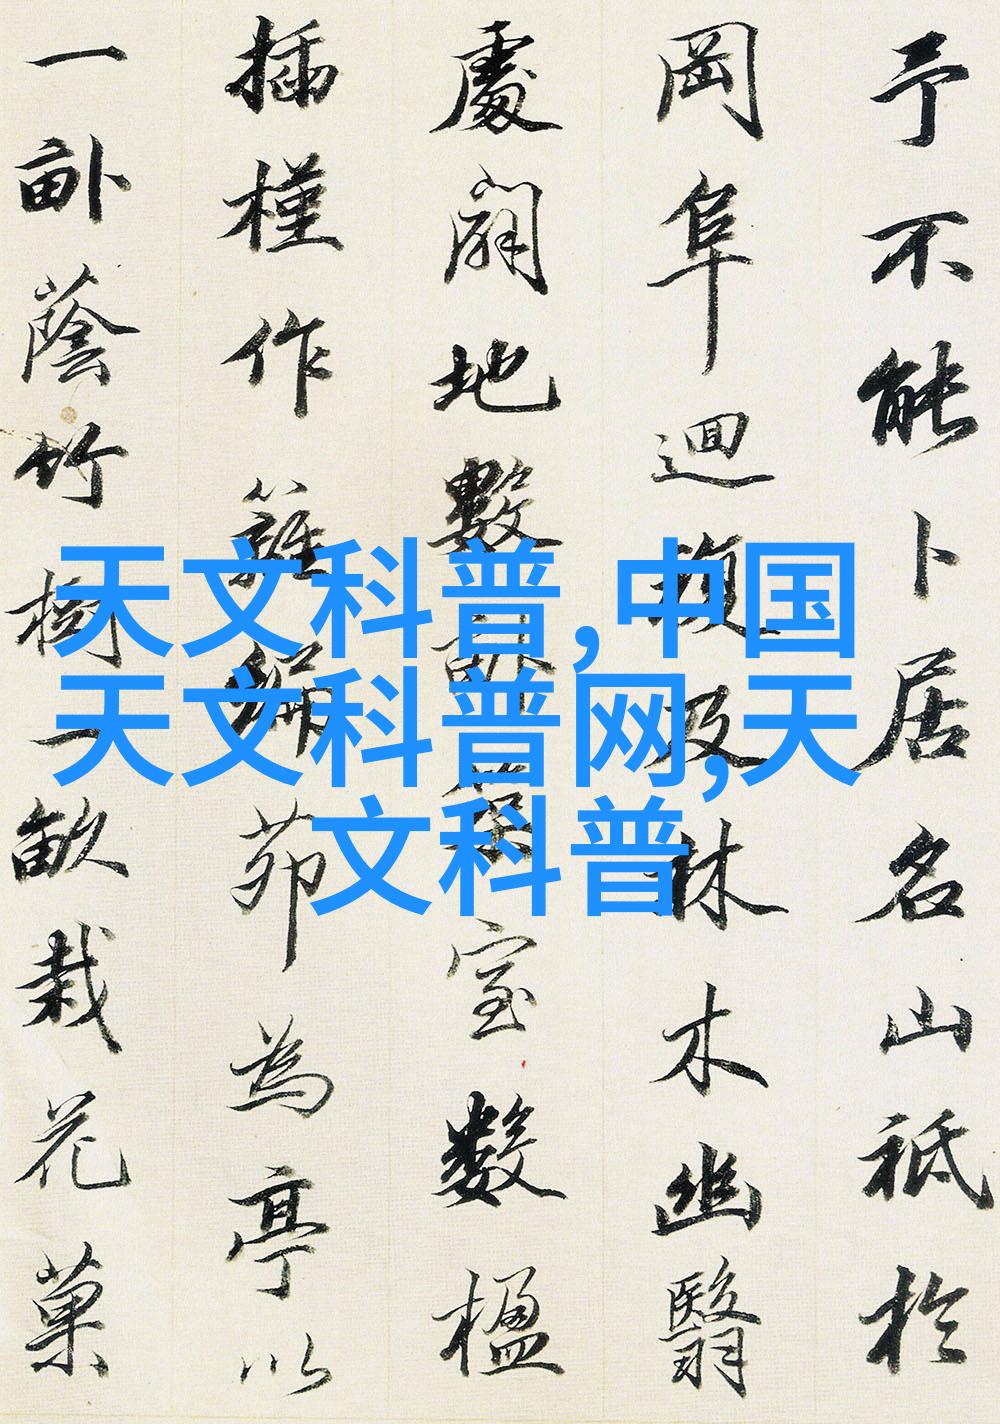 予不能卜居名山祗於
岡阜迴複及林木幽翳
處闢地數畝築室數楹
插槿作籬編茆為亭以
一畝蔭竹樹一畝栽花菓
天文科普,中国
天文科普网,天
文科普